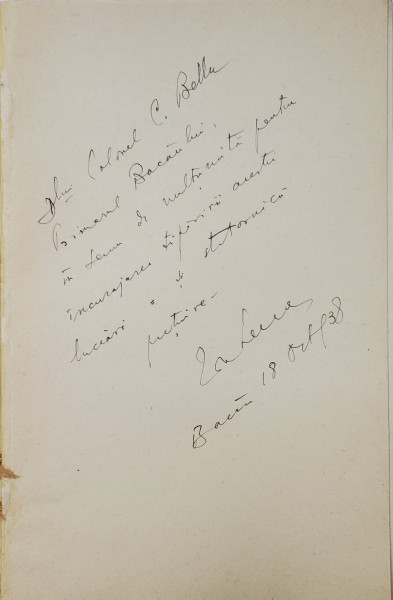 Dlui Colonel C. Bellu
Primarul Bacăului,
în semn de mulțumită pentru
încurajarea tipăririi acestei
lucrări și statornică
prețuire-
Bacău 18 Oct/38